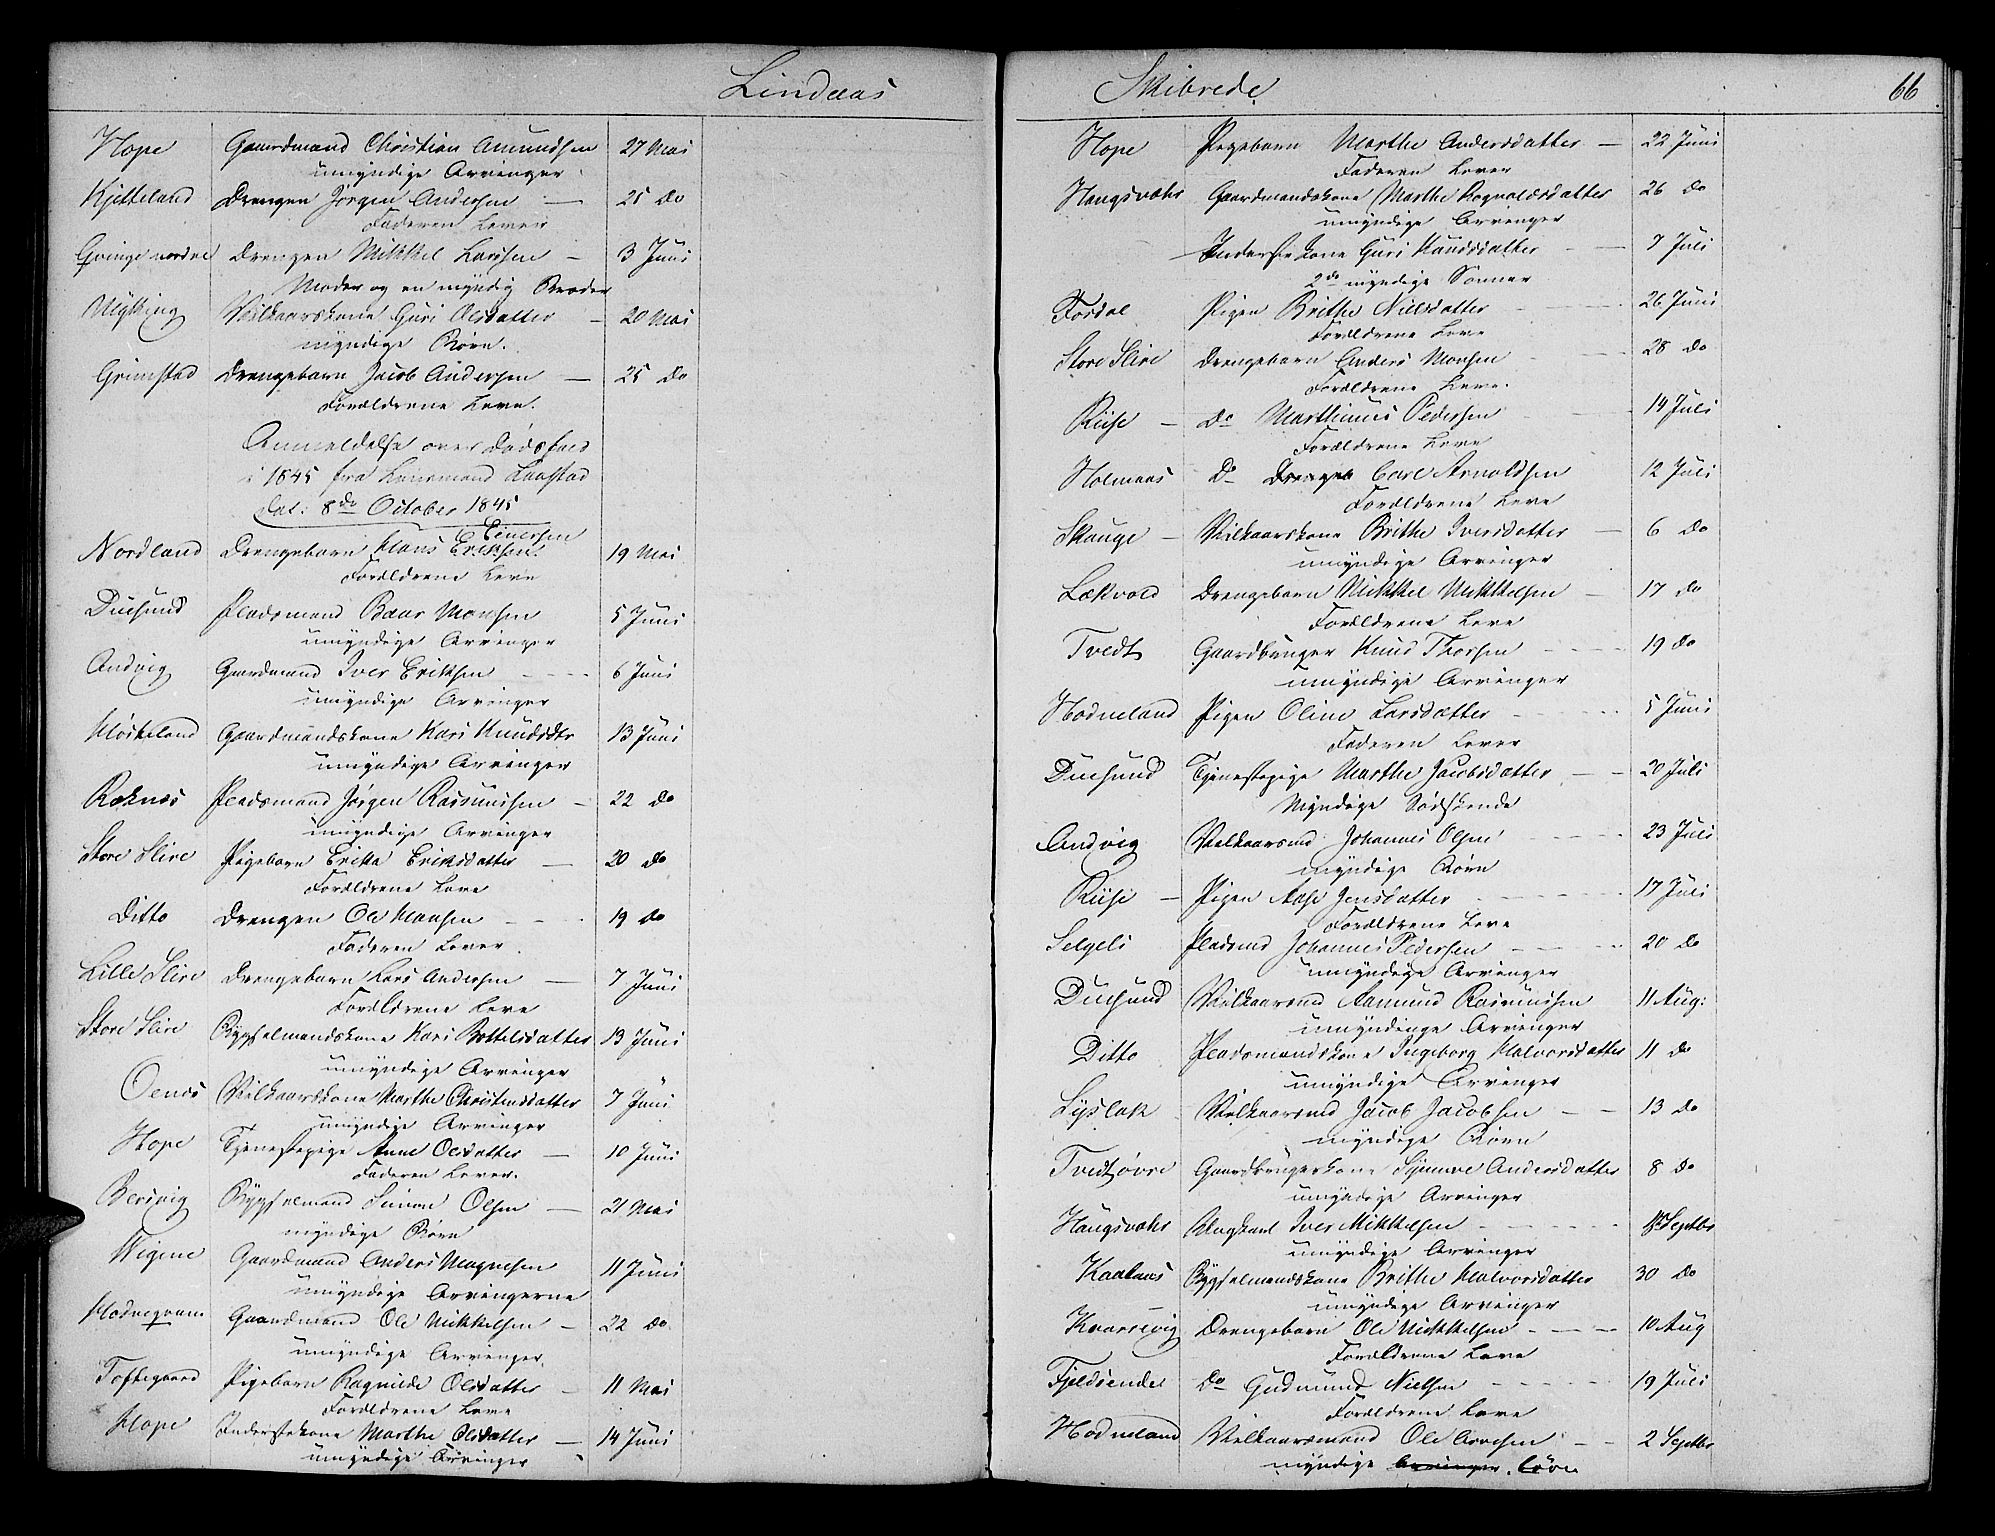 Lindaas
Hope Gaardmand Christian Amundsen 27 Mai
umyndige Arvinger
Kjetteland Drengen Jørgen Andersen — 25 do
Faderen Lever
Qvinge nordre Drengen Mikkel Larssen — 3 Juni
Moder og en myndig Broder
Mykking Vilkaarskone Guri Olsdatter — 20 Mai
myndige Børn.
Grimstad Drengebarn Jacob Andersen — 25 do
Forældrene Leve.
Anmeldelse over Dødsfald
i 1845 fra Lensmand Laastad
dat: 8de October 1845
Einersen
Nordland Drengebarn Hans Eriksen 19 Mai
Forældrene Leve
Duesund Pladsmand Baar Monsen 5 Juni
umyndige Arvinger
Andvig Gaardmand Iver Eriksen 6 Juni
umyndige Arvinger
Høskeland Gaardmandskone Kari Knudsdtr 13 Juni
umyndige Arvinger
Roknes Pladsmand Jørgen Rasmussen — 22 do
umyndige Arvinger
Store Slire Pigebarn Erika Eriksdatter — 20 do
Forældrene Leve
Ditto Drengen Ole Hansen 19 do
Faderen Lever
Lille Slire Drengebarn Lars Andersen — 7 Juni
Forældrene Leve
Store Slire Bygselmandskone Kari Bottelsdatter 13 Juni
umyndige Arvinger
Oenes Vilkaarskone Marthe Christensdatter 7 Juni
umyndige Arvinger
Hope Tjenestepige Anne Olsdatter — 10 Juni
Faderen Lever.
Bersvig Bygselmand Simon Olsen — 21 Mai
myndige Børn
Vigene Gaardmand Anders Magnesen 11 Juni
umyndige Arvingerne
Hodneqvam Gaardmand Ole Mikkelsen — 22 do
umyndige Arvinger
Toftegaard Pigebarn Ragnilde Olsdatter — 11 Mai
Forældrene Leve
Hope Inderstekone Marthe Olsdatter — 14 Juni
umyndige Arvinger
Skibrede 66
Hope Pigebarn Marthe Andersdatter — 22 Juni
Faderen Lever
Hougsvær Gaardmandskone Marthe Rognaldsdatter 26 do
umyndige Arvinger
Inderstekone Guri Knudsdatter — 7 Juli
2de myndige Sønner
Fosdal Pigen Brithe Nielsdatter 26 Juni
Forældrene Leve
Store Slire Drengebarn Anders Monsen 28 do
Forældrene Leve.
Riise — Do Marthinus Pedersen 14 Juli
Forældrene Leve
Holmaas Do Drengeb Carl Arnoldsen 12 Juli
Forældrene Leve
Skauge — Vilkaarskone Brithe Iversdatter — 6 do
umyndige Arvinger
Lækvold Drengebarn Mikkel Mikkelsen — 17 do
Forældrene Leve
Tvedt Gaardbruger Knud Thorsen 19 do
umyndige Arvinger
Hodneland Pigen Oline Larsdatter 5 Juni
Faderen Lever
Duesund Tjenestepige Marthe Jacobsdatter — 20 Juli
Myndige Sødskende
Andvig Vilkaarsmd Johannes Olsen 23 Juli
myndige Børn
Riise — Pigen Aase Jensdatter 17 Juli
Forældrene Leve
Selgeli Pladsmd Johannes Pedersen 20 do
umyndige Arvinger
Duesund Vilkaarsmd Aamund Rasmussen 11 Aug:
umyndinge Arvinger
Ditto Pladsmandskone Ingeborg Halvorsdatter 11 do
umyndige Arvinger
Lyslok Vilkaarsmd Jacob Jacobsen — 13 do
myndige Børn
Tvedt øvre Gaardbrugerkone Synneve Andersdatter 8 do
umyndige Arvinger
Hougsvær Ungkarl Iver Mikkelsen Septbr
umyndige Arvinger
Kaalaas Bygselmandskone Brithe Halvorsdatter 30 do
umyndige Arvinger
Kvarrevig Drengebarn Ole Mikkelsen — 10 Aug
Forældrene Leve
Fjeldsende Do Gudmund Nielsen 19 Juli
Forældrene Leve
Hodneland Vilkaarsmand Ole Arnesen — 2 Septbr
myndige Arvinger børn